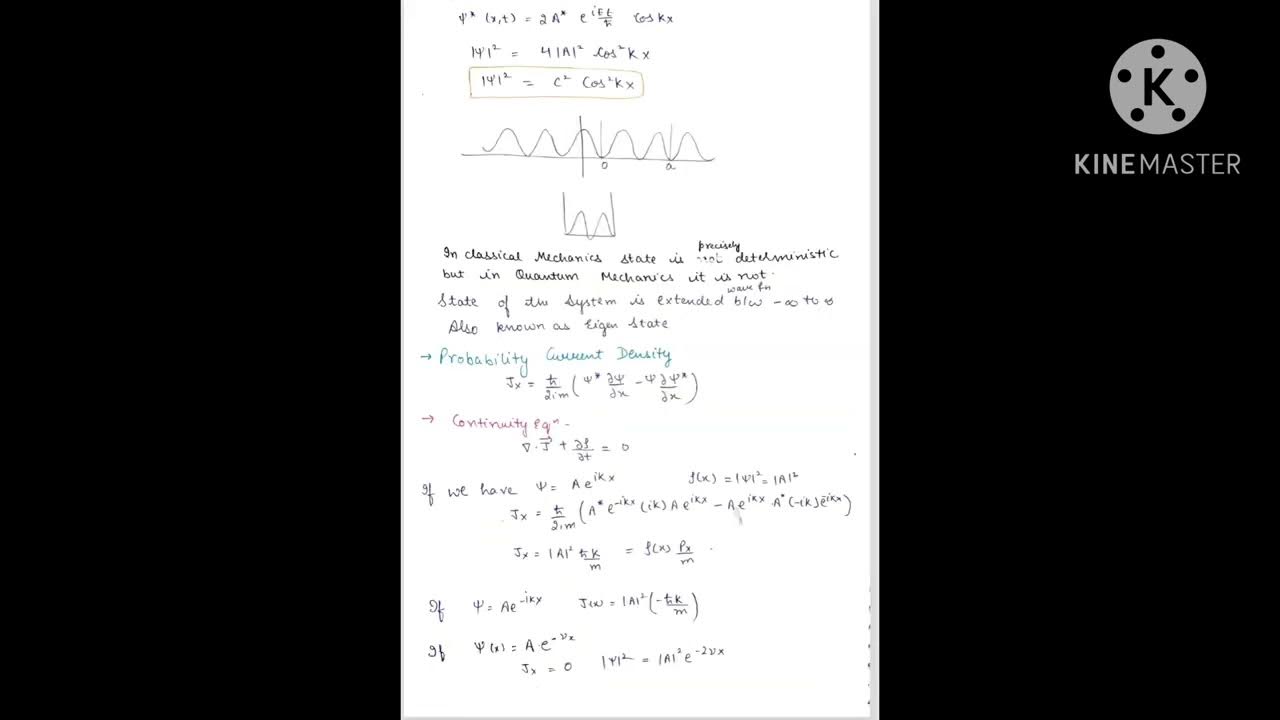 Ψ* (x,t) = 2A* e^{iEt/ħ} Cos kx
|Ψ|² = 4|A|² Cos²Kx
|Ψ|² = C² Cos²Kx
0 a
In classical Mechanics state is precisely deterministic
but in Quantum Mechanics it is not.
State of the system is extended b/w -∞ to ∞
wave fn
Also known as Eigen State
→ Probability Current Density
Jx = ħ/2im (Ψ* ∂Ψ/∂x - Ψ ∂Ψ*/∂x)
→ Continuity Eqⁿ -
∇·J⃗ + ∂ρ/∂t = 0
If we have Ψ = Ae^{ikx} ρ(x) = |Ψ|² = |A|²
Jx = ħ/2im (A* e^{-ikx} (ik) A e^{ikx} - A e^{ikx} · A* (-ik) e^{-ikx})
Jx = |A|² ħk/m = ρ(x) Px/m
If Ψ = Ae^{-ikx} J(x) = |A|² (-ħk/m)
If Ψ(x) = A e^{-νx}
Jx = 0 |Ψ|² = |A|² e^{-2νx}
K
KINEMASTER